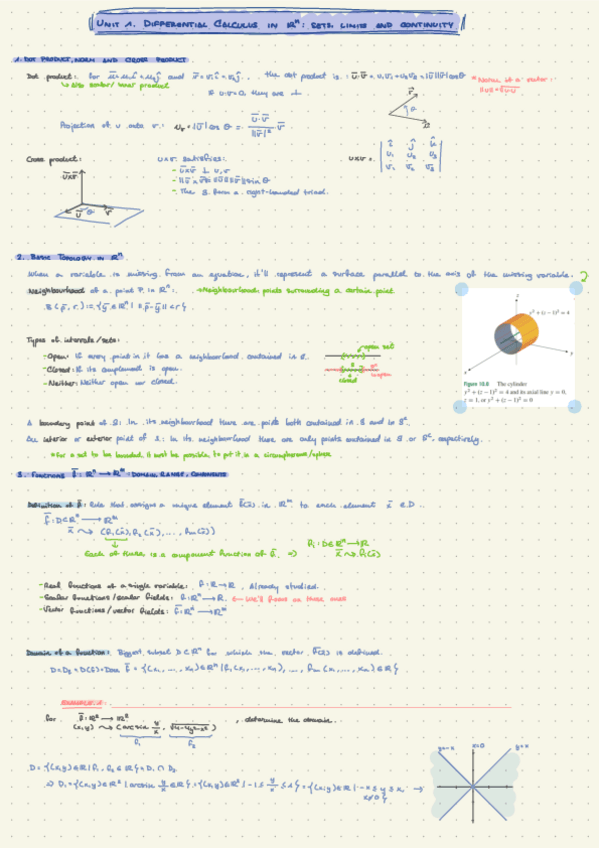 UNIT 1. DIFFERENTIAL CALCULUS IN ℝⁿ: SETS, LIMITS AND CONTINUITY
1. DOT PRODUCT, NORM AND CROSS PRODUCT
Dot product: for u̅=u₁î+u₂ĵ and v̅=v₁î+v₂ĵ, the dot product is: u̅·v̅=u₁v₁+u₂v₂=|u̅||v̅|cosθ
*Norm of a vector:
↳ also scalar/inner product
If u·v=0, they are ⊥
||u||=√u·u
Projection of u onto v:
Cross product:
u×v satisfies:
- u̅×v̅ ⊥ u,v
- ||u̅×v̅||=||u̅||||v̅||sinθ
- The 3 form a right-handed triad.
u×v=
î ĵ k̂
u₁ u₂ u₃
v₁ v₂ v₃
u̅×v̅
2. BASIC TOPOLOGY IN ℝⁿ
When a variable is missing from an equation, it'll represent a surface parallel to the axis of the missing variable.
Neighbourhood of a point P in ℝⁿ: →Neighbourhood: points surrounding a certain point
B(p̅,r)={y̅∈ℝⁿ| ||p̅-y̅||<r}
y² + (z − 1)² = 4
Figure 10.8 The cylinder
y² + (z − 1)² = 4 and its axial line y = 0,
z = 1, or y² + (z − 1)² = 0
Types of intervals/sets:
-Open: If every point in it has a neighbourhood contained in S.
-Closed: If its complement is open.
-Neither: Neither open nor closed.
open set
closed
A boundary point of S: In its neighbourhood there are points both contained in S and in Sᶜ.
An interior or exterior point of S: In its neighbourhood there are only points contained in S or Sᶜ, respectively.
*For a set to be bounded, it must be possible to put it in a circumference/sphere
3. FUNCTIONS f̅: ℝⁿ → ℝᵐ: DOMAIN, RANGE, COMPONENTS
Definition of f̅: Rule that assigns a unique element f̅(x̅) in ℝᵐ to each element x̅ ∈ D.
f̅: D⊂ℝⁿ → ℝᵐ
x̅ ⤳ (f₁(x̅), f₂(x̅), ..., fₘ(x̅))
Each of these is a component function of f̅. ⇒
fᵢ: D∈ℝⁿ → ℝ
x̅ ⤳ fᵢ(x̅)
-Real functions of a single variable: f: ℝ→ℝ. Already studied.
-Scalar functions/scalar fields: f: ℝⁿ→ℝ. ← We'll focus on these ones
-Vector functions/vector fields: f̅: ℝⁿ → ℝᵐ
Domain of a function: Biggest subset D⊂ℝⁿ for which the vector f̅(x̅) is defined.
D=D_f=D(f)=Dom f̅ = {(x₁,...,xₙ)∈ℝⁿ| f₁(x₁,...,xₙ), ..., fₘ(x₁,...,xₙ)∈ℝ}
EXAMPLE 1:
for f̅: ℝ² → ℝ²
(x,y) ⤳ (arcsin y/x, √4-4y²-x²), determine the domain.
f₁ f₂
D={(x,y)∈ℝ| f₁, f₂∈ℝ}=D₁∩D₂
⇒ D₁={(x,y)∈ℝ²| arcsin y/x ∈ℝ}={(x,y)∈ℝ²| -1≤ y/x ≤1}={(x,y)∈ℝ| -x≤y≤x, x≠0}
y=-x x=0 y=x